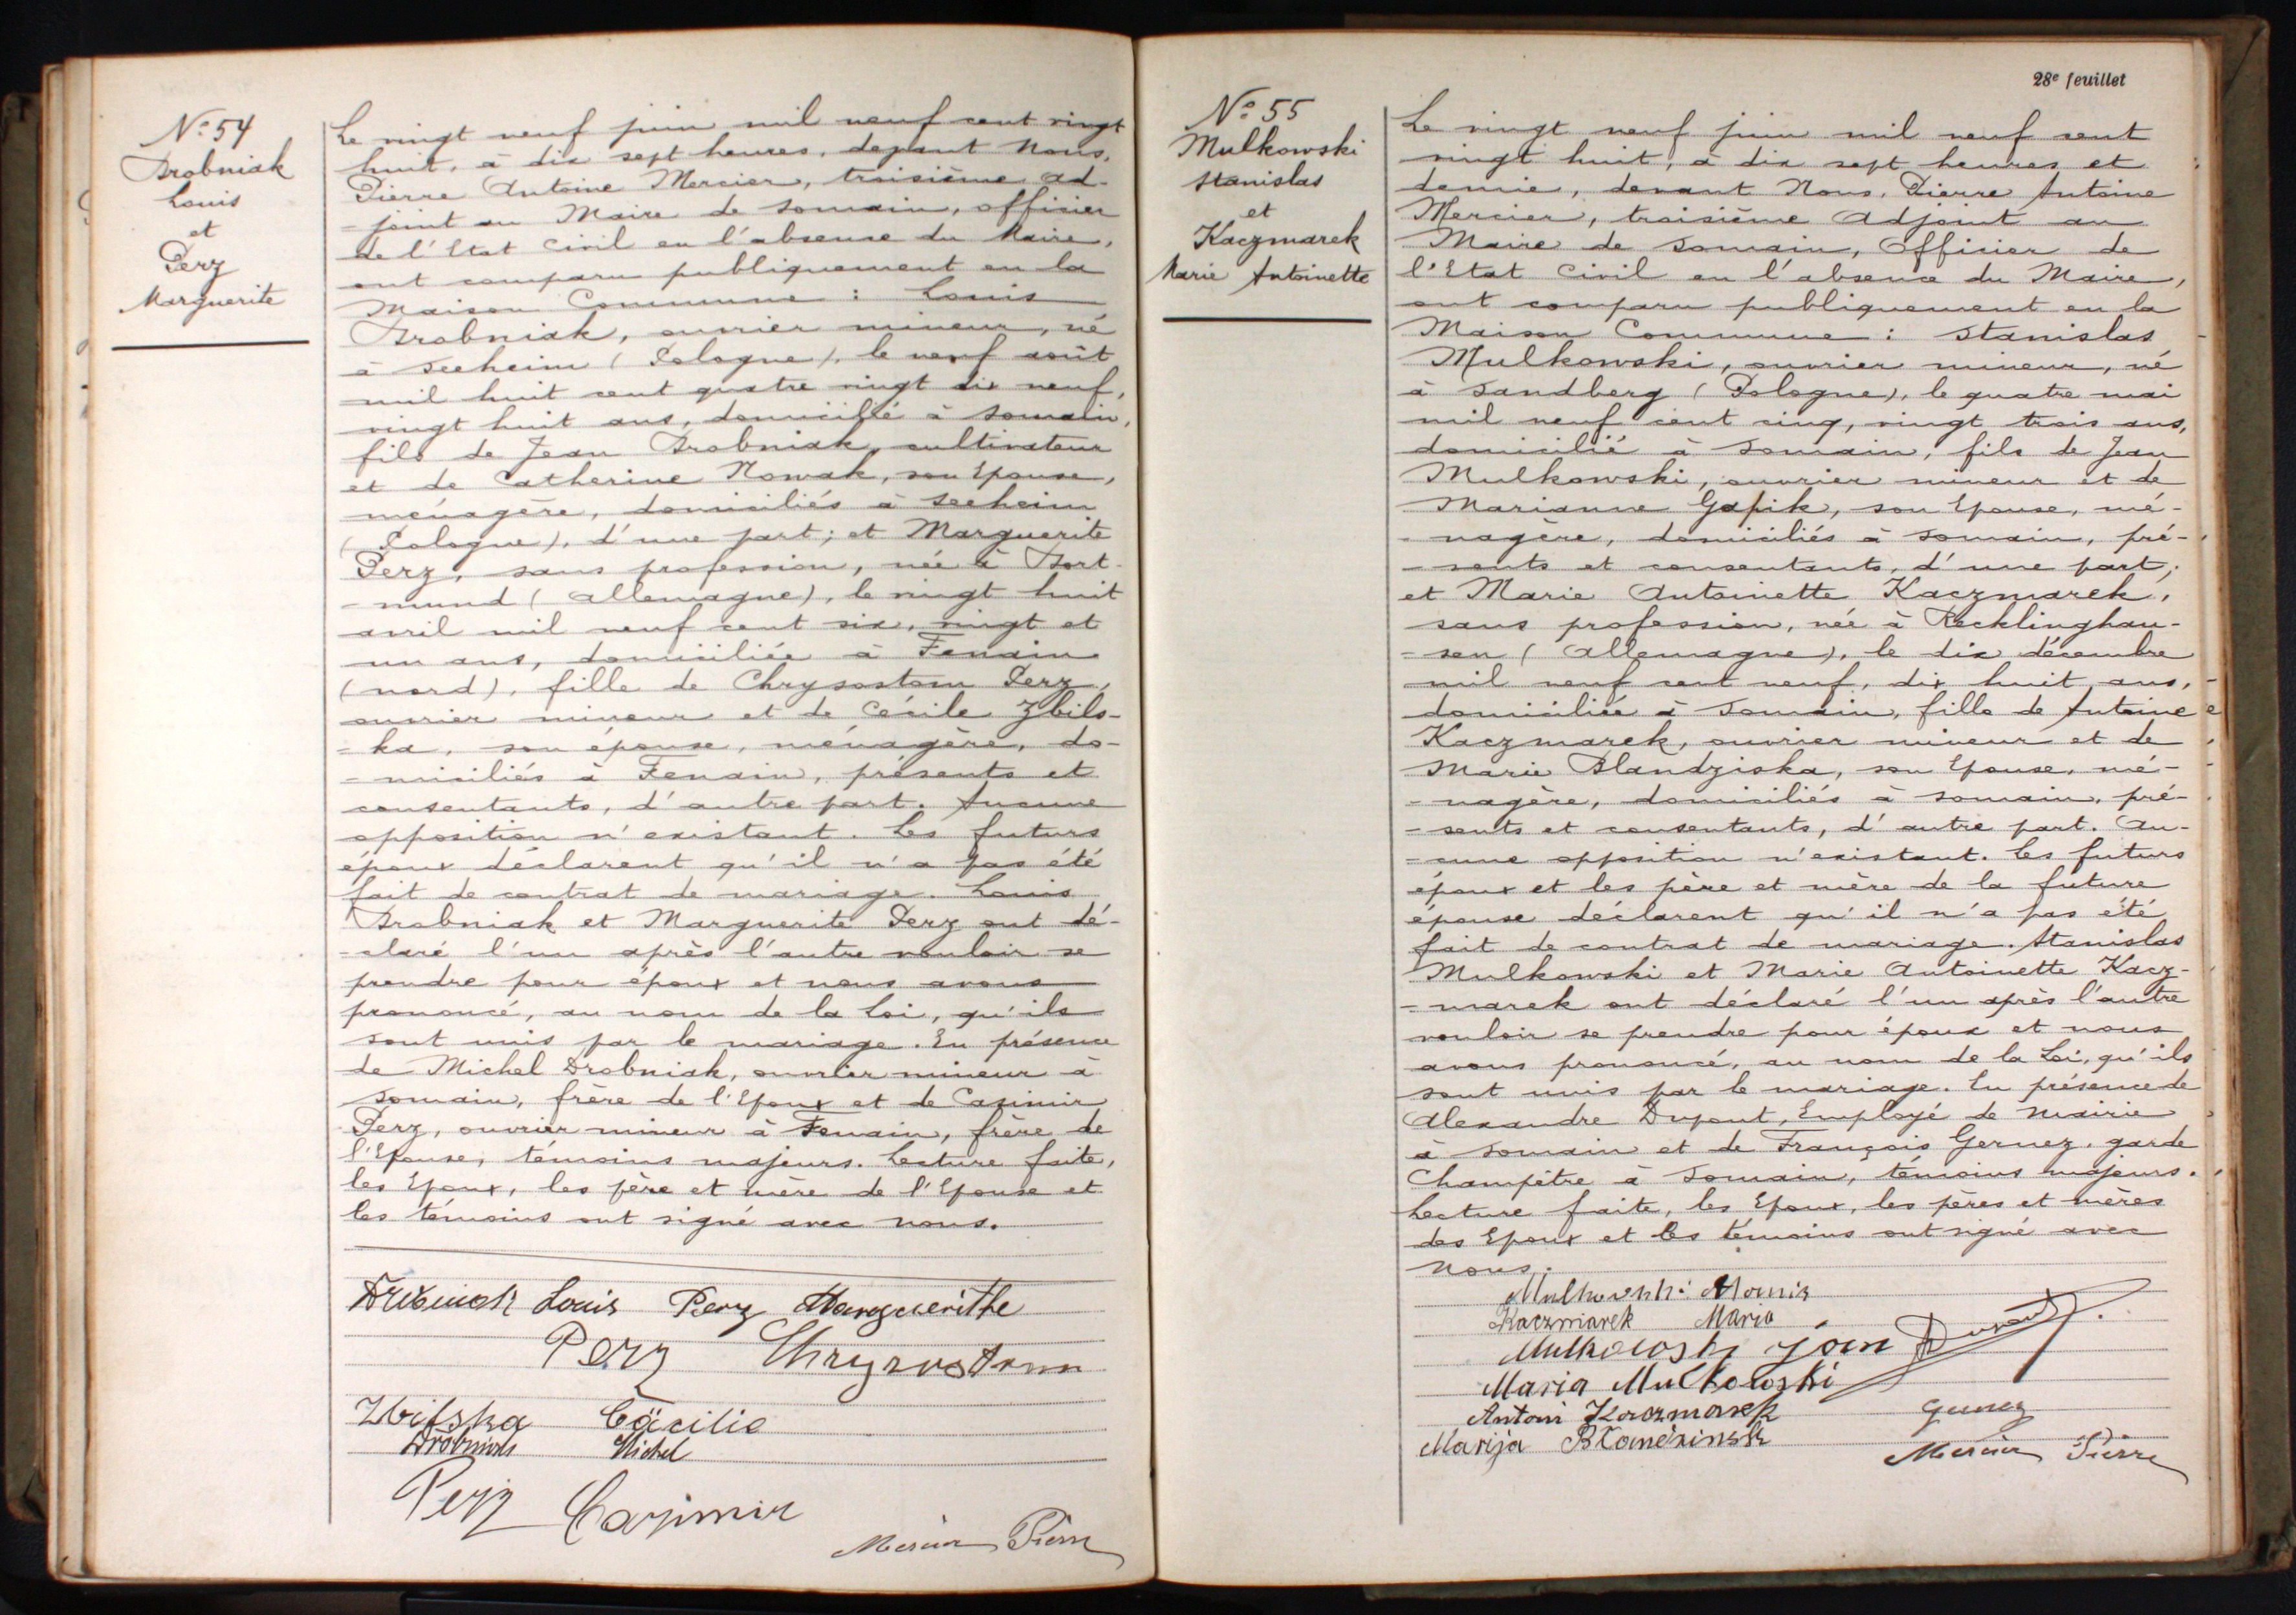 N° 54
Drobniak
Louis
et
Perz
Marguerite
Le vingt neuf juin mil neuf cent vingt
huit, à dix sept heures, devant Nous,
Pierre Antoine Mercier, troisième ad-
-joint au Maire de Somain, officier
de l'Etat Civil en l'absence du Maire,
ont comparu publiquement en la
Maison Commune : Louis
Drobniak, ouvrier mineur, né
à Seeheim (Pologne), le neuf août
mil huit cent quatre vingt dix neuf,
vingt huit ans, domicilié à Somain,
fils de Jean Drobniak, cultivateur
et de Catherine Nowak, son Epouse,
ménagère, domiciliés à Seeheim
(Pologne), d'une part ; et Marguerite
Perz, sans profession, née à Dort-
-mund (Allemagne), le vingt huit
avril mil neuf cent six, vingt et
un ans, domiciliée à Fenain
(nord), fille de Chrysostom Perz,
ouvrier mineur et de Cécile Zbils-
-ka, son épouse, ménagère, do-
-miciliés à Fenain, présents et
consentants, d'autre part. Aucune
opposition n'existant. Les futurs
époux déclarent qu'il n'a pas été
fait de contrat de mariage. Louis
Drobniak et Marguerite Perz ont dé-
-claré l'un après l'autre vouloir se
prendre pour époux et nous avons
prononcé, au nom de la Loi, qu'ils
sont unis par le mariage. En présence
de Michel Drobniak, ouvrier mineur à
Somain, frère de l'Epoux et de Casimir
Perz, ouvrier mineur à Fenain, frère de
l'Epouse, témoins majeurs. Lecture faite,
les Epoux, les père et mère de l'Epouse et
les témoins ont signé avec nous.
Drobniak Louis Perz Marguerithe
Perz Chryzostom
Zbilska Cäcilie
Drobniak Michel
Perz Casimir
Mercier Pierre
28e feuillet
N° 55
Mulkowski
Stanislas
et
Kaczmarek
Marie Antoinette
Le vingt neuf juin mil neuf cent
vingt huit, à dix sept heures et
demie, devant Nous, Pierre Antoine
Mercier, troisième Adjoint au
Maire de Somain, Officier de
l'Etat Civil en l'absence du Maire,
ont comparu publiquement en la
Maison Commune : Stanislas
Mulkowski, ouvrier mineur, né
à Sandberg (Pologne), le quatre mai
mil neuf cent cinq, vingt trois ans,
domicilié à Somain, fils de Jean
Mulkowski, ouvrier mineur et de
Marianne Gapik, son Epouse, mé-
-nagère, domiciliés à Somain, pré-
-sents et consentants, d'une part ;
et Marie Antoinette Kaczmarek,
sans profession, née à Recklinghau-
-sen (Allemagne), le dix décembre
mil neuf cent neuf, dix huit ans,
domiciliée à Somain, fille de Antoine
Kaczmarek, ouvrier mineur et de
Marie Blandziska, son Epouse, mé-
-nagère, domiciliés à Somain, pré-
-sents et consentants, d'autre part. Au-
-cune opposition n'existant. Les futurs
époux et les père et mère de la future
épouse déclarent qu'il n'a pas été
fait de contrat de mariage. Stanislas
Mulkowski et Marie Antoinette Kacz-
-marek ont déclaré l'un après l'autre
vouloir se prendre pour époux et nous
avons prononcé, au nom de la Loi, qu'ils
sont unis par le mariage. En présence de
Alexandre Dupont, Employé de Mairie
à Somain et de François Gernez, garde
Champêtre à Somain, témoins majeurs.
Lecture faite, les Epoux, les pères et mères
des Epoux et les témoins ont signé avec
Nous.
Mulkowski
Kaczmarek Maria
Mulkowski Dupont
Maria Mulkowski
Antoni Kaczmarek Gernez
Marija
Mercier Pierre